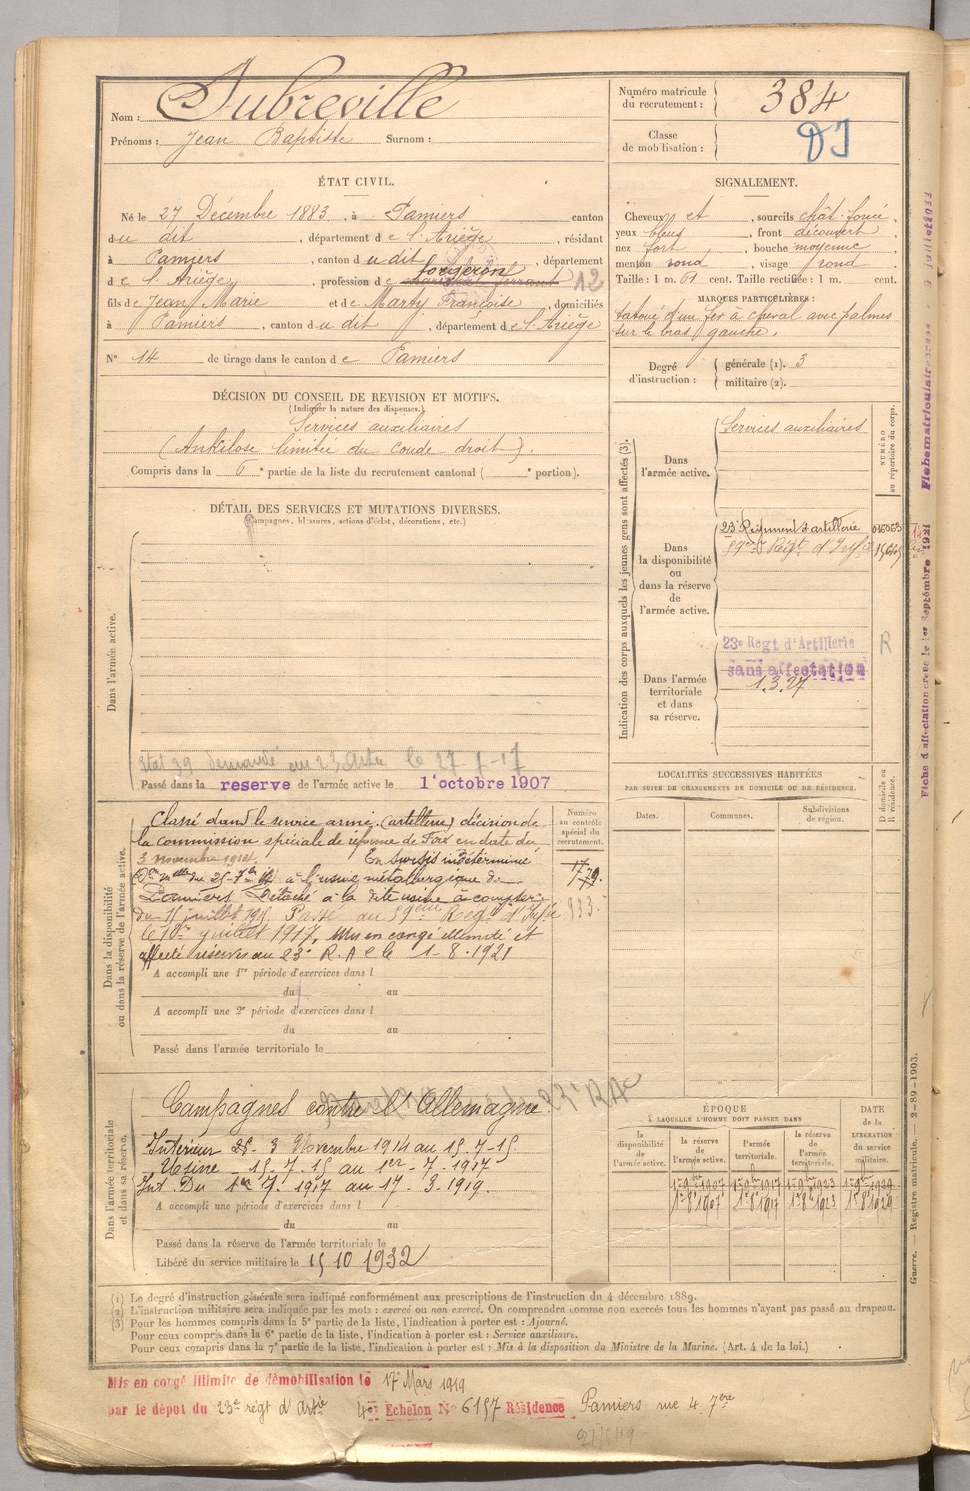 Nom : Aubreville
Prénoms : Jean Baptiste Surnom :
Numéro matricule du recrutement : 384
Classe de mobilisation : DI
ÉTAT CIVIL.
Né le 27 Décembre 1883, à Pamiers canton
du dit, département de l'Ariège, résidant
à Pamiers, canton du dit, département
de l'Ariège, profession de forgeron 12
fils de Jean Marie et de Marty Françoise, domiciliés
à Pamiers, canton du dit, département de l'Ariège
N° 14 de tirage dans le canton de Pamiers
SIGNALEMENT.
Cheveux et, sourcils chât-foncé,
yeux bleus, front découvert
nez fort, bouche moyenne
menton rond, visage rond
Taille : 1 m. 61 cent. Taille rectifiée : 1 m. cent.
MARQUES PARTICULIÈRES :
tatoué d'un fer à cheval avec palmes
sur le bras gauche.
Degré d'instruction : générale (1). 3
militaire (2).
DÉCISION DU CONSEIL DE REVISION ET MOTIFS.
(Indiquer la nature des dispenses.)
Services auxiliaires
(Ankilose limitée du coude droit).
Compris dans la 6e partie de la liste du recrutement cantonal ( e portion).
DÉTAIL DES SERVICES ET MUTATIONS DIVERSES.
(Campagnes, blessures, actions d'éclat, décorations, etc.)
Dans l'armée active.
Etat 39 demandé au 23 Artie le 27-7-17
Passé dans la reserve de l'armée active le 1er octobre 1907
Indication des corps auxquels les jeunes gens sont affectés (3).
NUMÉRO au répertoire du corps.
Dans l'armée active.
Services auxiliaires
Dans la disponibilité ou dans la réserve de l'armée active.
23e Régiment d'artillerie
59me Régt d'Infie
Dans l'armée territoriale et dans sa réserve.
23e Regt d'Artillerie
sans affectation
1.3.27
R
Dans la disponibilité ou dans la réserve de l'armée active.
Numéro au contrôle spécial du recrutement.
Classé dans le service armé (artillerie) décision de
la commission spéciale de réforme de Foix en date du
3 novembre 1914. En sursis indéterminé
à l'usine métallurgique de
Pamiers. Détaché à la dite usine à compter
du 15 juillet 1915. Passé au 59ème Régt d'Infie
le 1er juillet 1917. Mis en congé illimité et
affecté réserves au 23e R.A.C le 1-8-1921
A accompli une 1re période d'exercices dans l
du au
A accompli une 2e période d'exercices dans l
du au
Passé dans l'armée territoriale le
LOCALITÉS SUCCESSIVES HABITÉES
PAR SUITE DE CHANGEMENTS DE DOMICILE OU DE RÉSIDENCE.
Dates. Communes. Subdivisions de région. D domicile ou R résidence.
Dans l'armée territoriale et dans sa réserve.
Campagnes contre l'Allemagne
Intérieur 3 Novembre 1914 au 15-7-15
Usine - 15.7.15 au 1er - 7.1917
Int. Du 1er 7.1917 au 17.3.1919.
A accompli une période d'exercices dans l
du au
Passé dans la réserve de l'armée territoriale le
Libéré du service militaire le 15 10 1932
ÉPOQUE
À LAQUELLE L'HOMME DOIT PASSER DANS
la disponibilité de l'armée active. la réserve de l'armée active. l'armée territoriale. la réserve de l'armée territoriale. DATE de la LIBÉRATION du service militaire.
(1) Le degré d'instruction générale sera indiqué conformément aux prescriptions de l'instruction du 4 décembre 1889.
(2) L'instruction militaire sera indiquée par les mots : exercé ou non exercé. On comprendra comme non exercés tous les hommes n'ayant pas passé au drapeau.
(3) Pour les hommes compris dans la 5e partie de la liste, l'indication à porter est : Ajourné.
Pour ceux compris dans la 6e partie de la liste, l'indication à porter est : Service auxiliaire.
Pour ceux compris dans la 7e partie de la liste, l'indication à porter est : Mis à la disposition du Ministre de la Marine. (Art. 4 de la loi.)
Guerre. — Registre matricule. — 2-89-1903.
Mis en congé illimité de démobilisation le 17 Mars 1919
par le dépot du 23e régt d'Artie 4er Echelon N° 6157 Résidence Pamiers rue